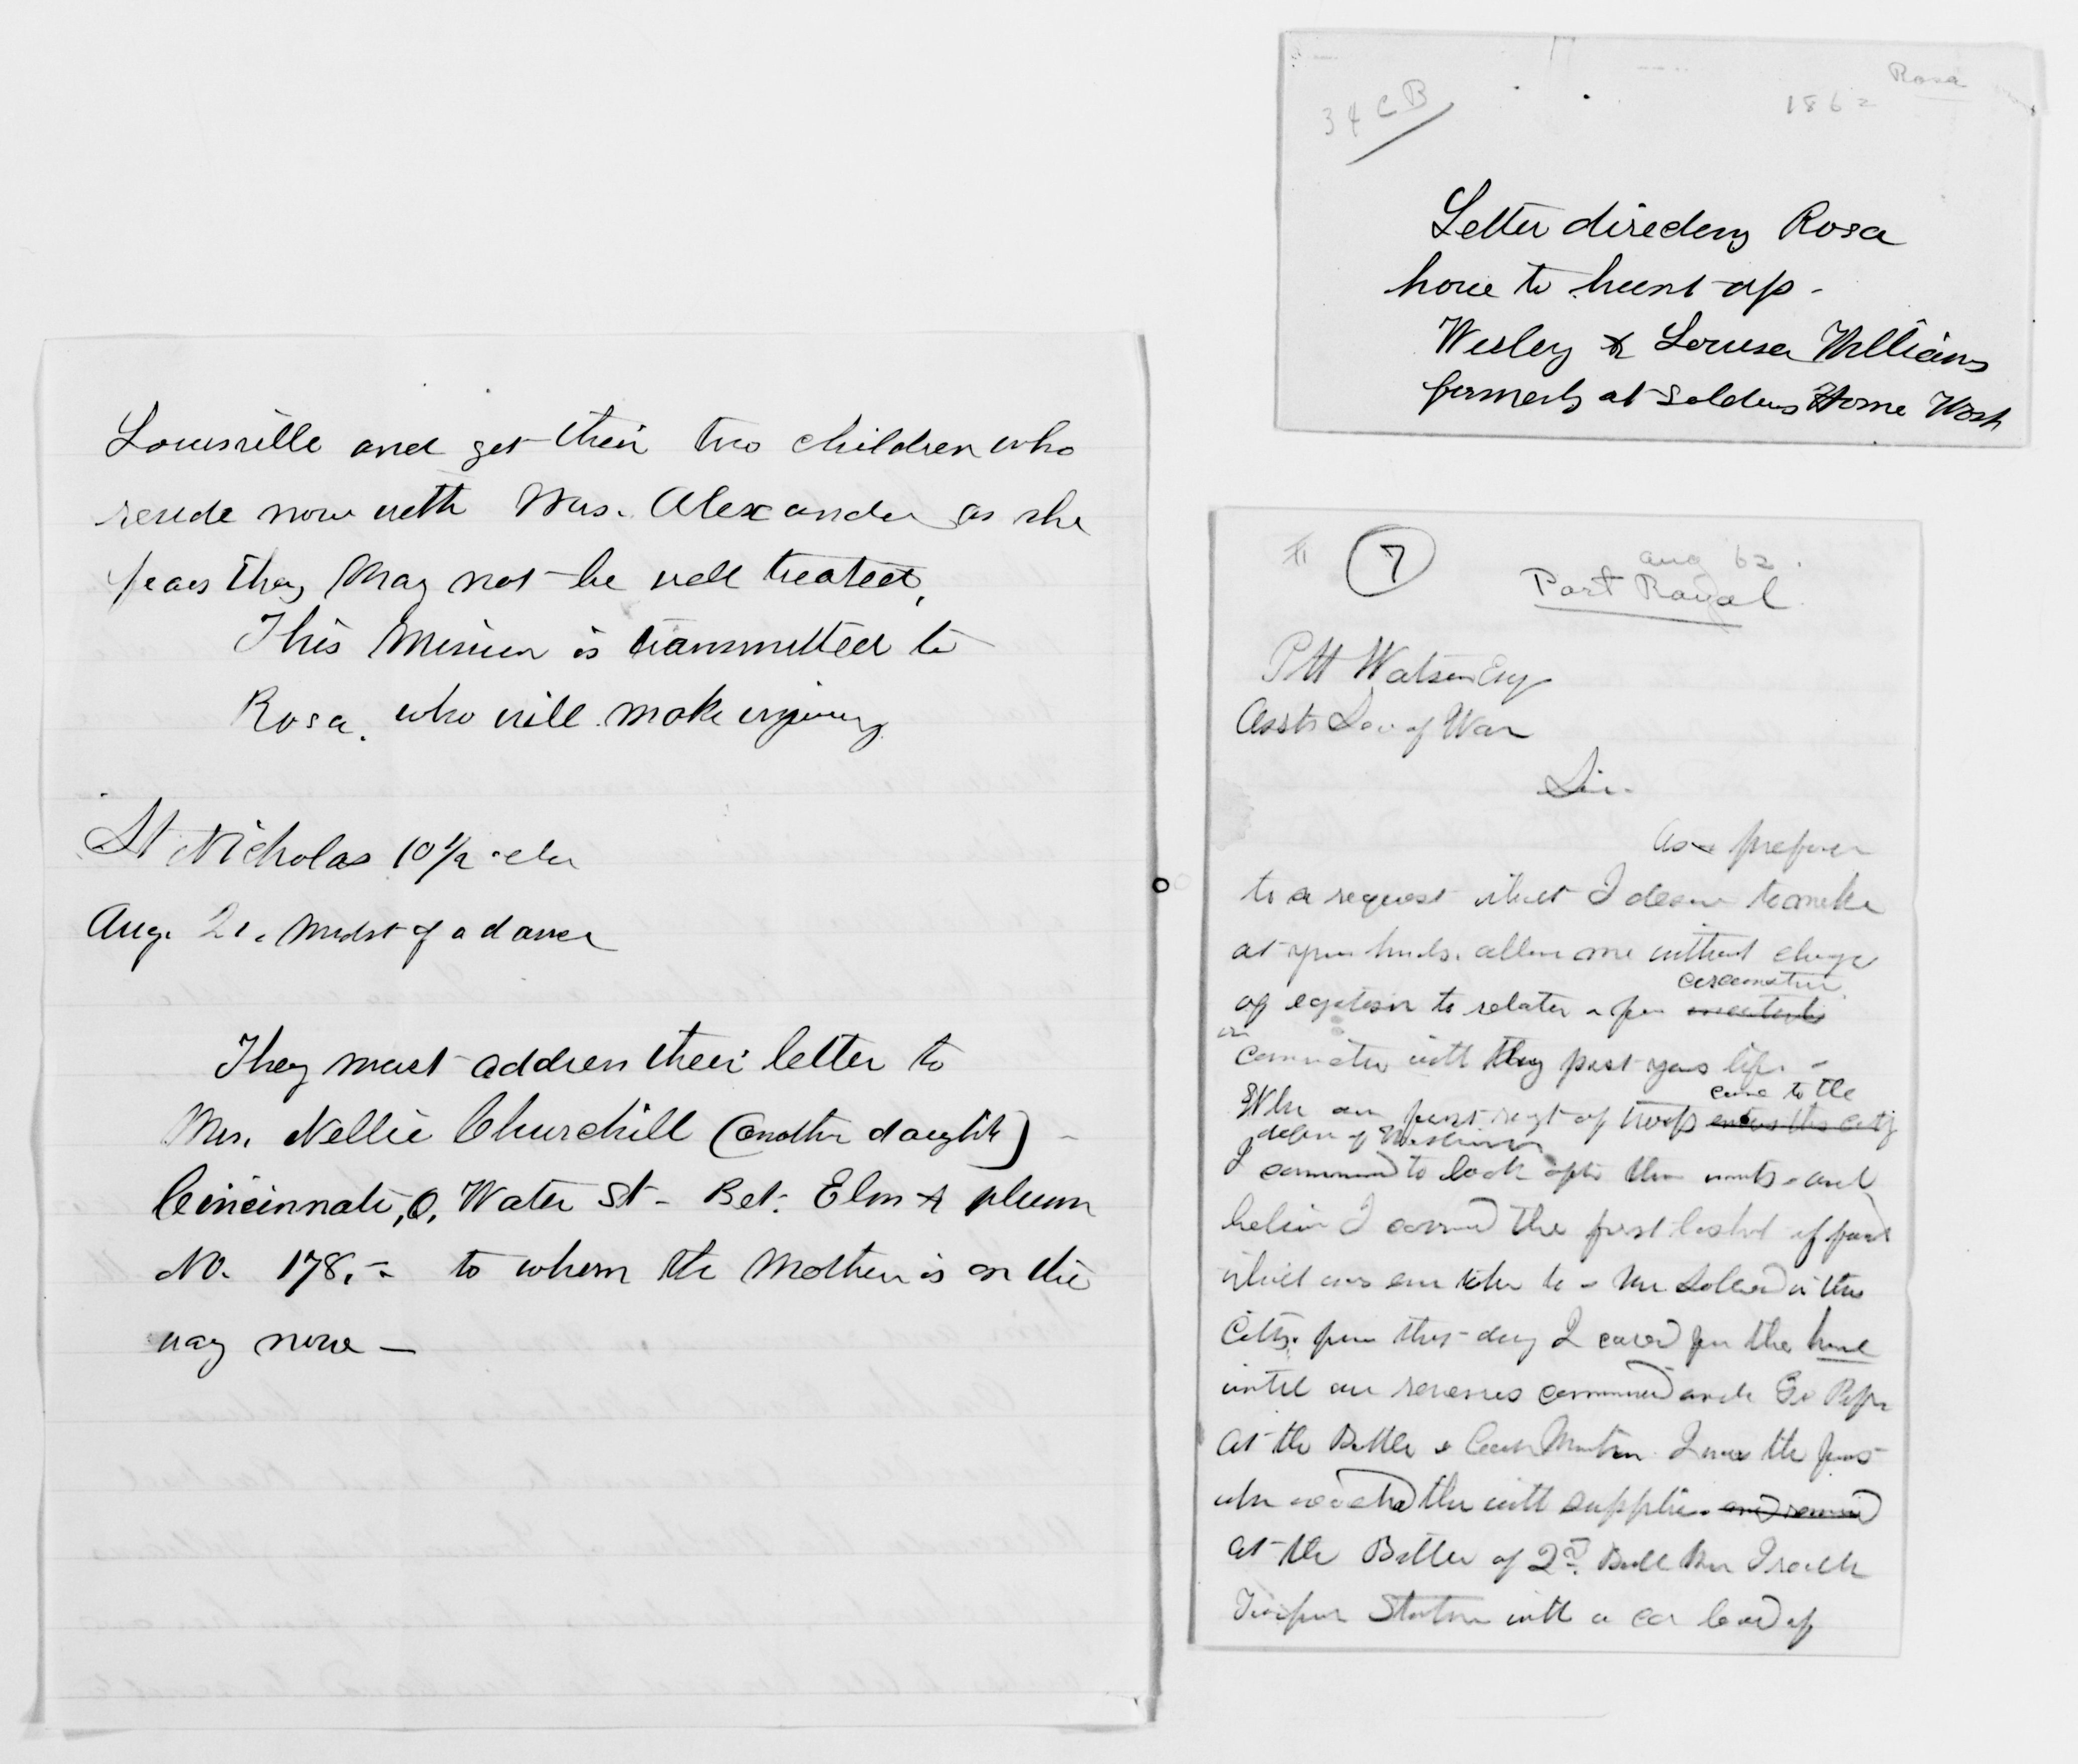 Louisville and get their two children who
reside now with Mrs. Alexander as she
fears they may not be well treated,
This Mission is transmitted to
Rosa, who will make inquiry
St Nicholas 10 1/2 oclk
Aug. 21. Midst of a dance
They must address their letter to
Mrs. Nellie Churchill (another daughter)
Cincinnati, O, Water St - Bet. Elm & plum
No. 178. - to whom the Mother is on the
way now -
34 CB
Rosa
1862
Letter directing Rosa
how to hunt up -
Wesley & Louisa Williams
formerly at Soldiers Home Wash
7
Aug 62.
Port Royal
Watson Esq
Asst Sec of War
Sir.
As a preface
to a request which I desire to make
at your hands. allow me without charge
of egotism to relate a few
circumstances
in
connection with the past years life -
When our first regt of troops
came to the
defense of Washington
I commenced to look after their wants and
believe I carried the first basket of food
which was ever taken to a soldier in this
City. from that day I cared for the
until our reverses commenced under Ge Pope
At the Battle of Cedar Mountain I was the first
who reached them with supplies and
At the Battle of 2nd. Bull Run I reached
Fairfax Station with a car load of